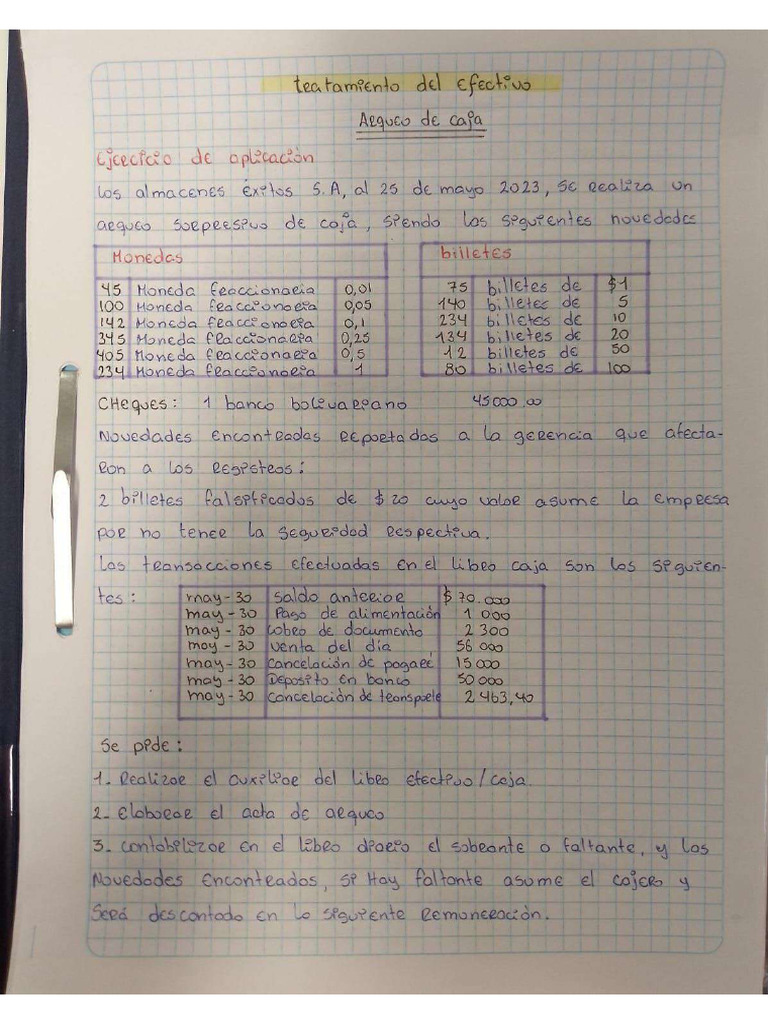 tratamiento del efectivo
Arqueo de caja
Ejercicio de aplicación
los almacenes éxitos S.A, al 25 de mayo 2023, se realiza un
arqueo sorpresivo de caja, siendo las siguientes novedades
Monedas
45 Moneda fraccionaria 0,01
100 Moneda fraccionaria 0,05
142 Moneda fraccionaria 0,1
345 Moneda fraccionaria 0,25
405 Moneda fraccionaria 0,5
234 Moneda fraccionaria 1
billetes
75 billetes de $1
140 billetes de 5
234 billetes de 10
134 billetes de 20
12 billetes de 50
80 billetes de 100
Cheques: 1 banco bolivariano 45000.00
Novedades encontradas reportadas a la gerencia que afecta-
ron a los registros:
2 billetes falsificados de $20 cuyo valor asume la empresa
por no tener la seguridad respectiva.
Las transacciones efectuadas en el libro caja son las siguien-
tes:
may-30 saldo anterior $70.000
may-30 Pago de alimentación 1 000
may-30 cobro de documento 2 300
may-30 venta del día 56 000
may-30 cancelación de pagaré 15 000
may-30 Deposito en banco 50 000
may-30 cancelación de transporte 2 463,40
Se pide:
1- Realizar el auxiliar del libro efectivo/caja.
2- Elaborar el acta de arqueo
3- contabilizar en el libro diario el sobrante o faltante, y las
Novedades encontradas, si hay faltante asume el cajero y
será descontado en la siguiente remuneración.